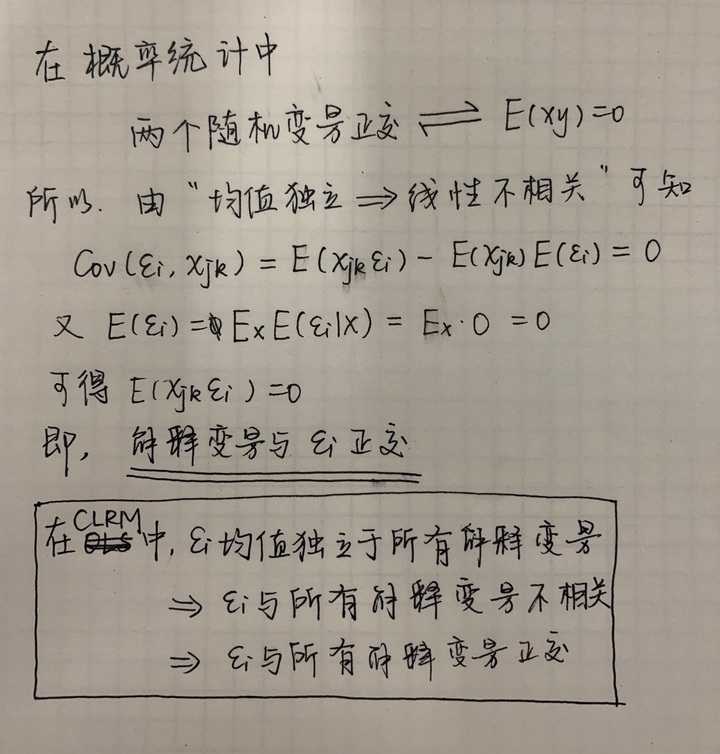 在概率统计中
两个随机变量正交 ⇌ E(xy)=0
所以. 由“均值独立 ⇒ 线性不相关”可知
Cov(εi, xjk) = E(xjkεi) - E(xjk)E(εi) = 0
又 E(εi) = ExE(εi|X) = Ex·0 = 0
可得 E(xjkεi)=0
即, 解释变量与 εi 正交
在CLRM中, εi均值独立于所有解释变量
⇒ εi与所有解释变量不相关
⇒ εi与所有解释变量正交